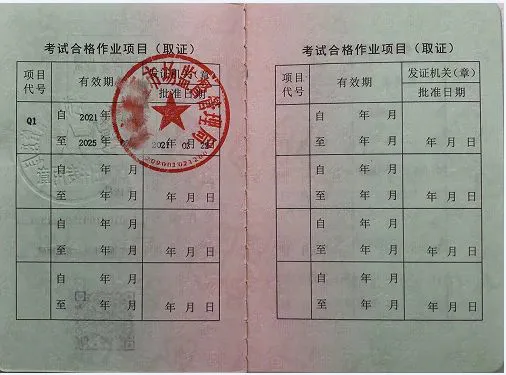 考试合格作业项目（取证）
项目代号 有效期 发证机关（章）
批准日期
Q1 自 2021 年
至 2025 年 2021 年
市场监督管理局
自 年 月
至 年 月 年 月 日
自 年 月
至 年 月 年 月 日
自 年 月
至 年 月 年 月 日
考试合格作业项目（取证）
项目代号 有效期 发证机关（章）
批准日期
自 年 月
至 年 月 年 月 日
自 年 月
至 年 月 年 月 日
自 年 月
至 年 月 年 月 日
自 年 月
至 年 月 年 月 日